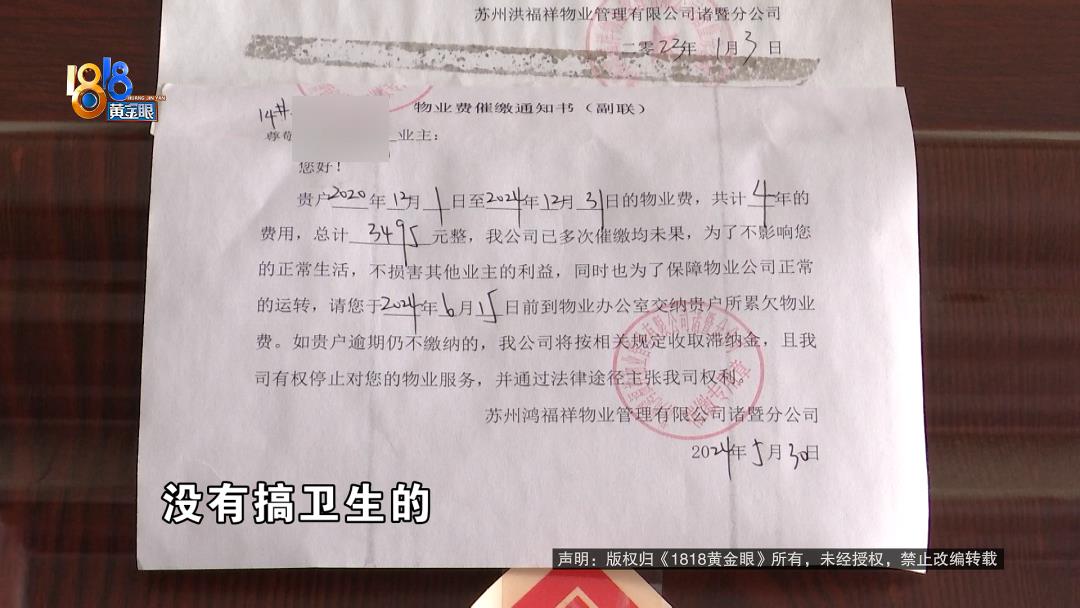 苏州洪福祥物业管理有限公司诸暨分公司
二零23年1月3日
1818
HUANG JIN YAN
黄金眼
物业费催缴通知书（副联）
14#
尊敬 业主：
您好！
贵户2020年12月1日至2024年12月31日的物业费，共计4年的
费用，总计3495元整，我公司已多次催缴均未果，为了不影响您
的正常生活，不损害其他业主的利益，同时也为了保障物业公司正常
的运转，请您于2024年6月15日前到物业办公室交纳贵户所累欠物业
费。如贵户逾期仍不缴纳的，我公司将按相关规定收取滞纳金，且我
司有权停止对您的物业服务，并通过法律途径主张我司权利。
苏州鸿福祥物业管理有限公司诸暨分公司
2024年5月30日
没有搞卫生的
声明：版权归《1818黄金眼》所有，未经授权，禁止改编转载